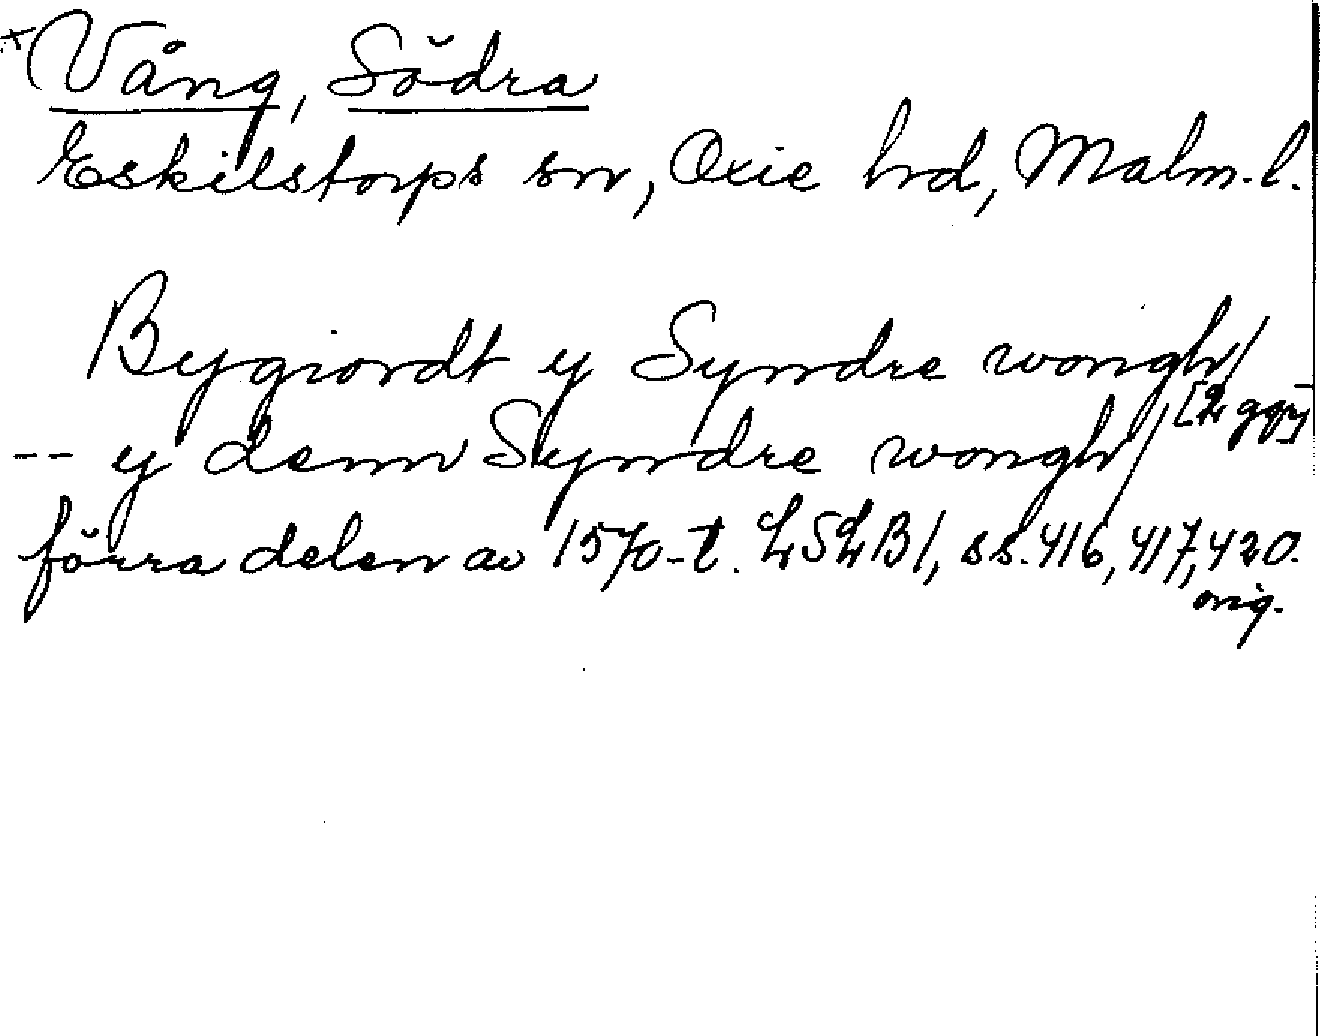 + Vång, Södra
Eskilstorps sn, Oxie hd, Malm. l.
Bygiordt y Syndre wongh/
[2 ggr]
-- y denn Syndre wongh/
förra delen av 1570-t. LSLB1, ss. 416, 417, 420.
orig.